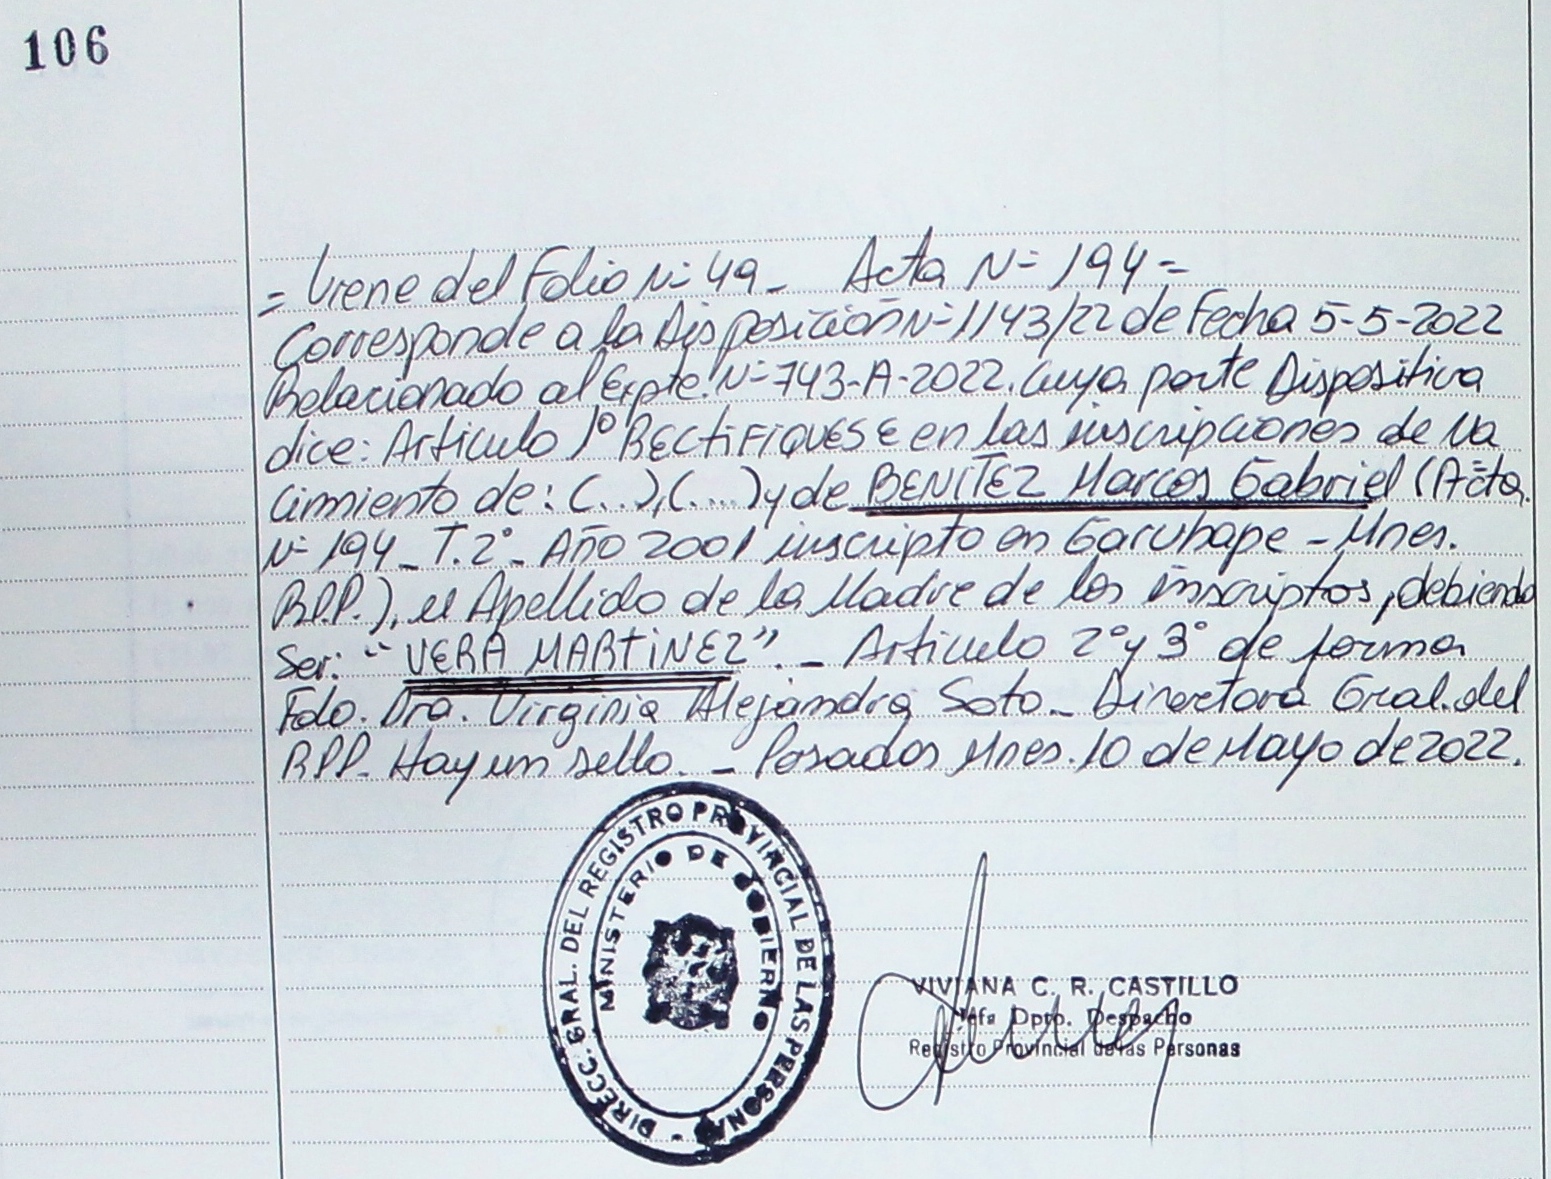 106
= Viene del Folio Nº 49_ Acta Nº 194=
Corresponde a la Disposición Nº 1143/22 de Fecha 5-5-2022
Relacionado al Expte. Nº 743-A-2022. Cuya parte Dispositiva
dice: Articulo 1º RECTIFIQUESE en las inscripciones de Na
cimiento de: (...), (....) y de BENITEZ Marcos Gabriel (Acta.
Nº 194_ T.2º_ Año 2001 inscripto en Garuhape - Mnes.
R.P.P.), el Apellido de la Madre de los inscriptos, debiendo
Ser: "VERA MARTINEZ"._ Articulo 2º y 3º de forma
Fdo. Dra. Virginia Alejandra Soto_ Directora Gral. del
R.P.P. Hay un sello._ Posadas Mnes. 10 de Mayo de 2022.
DIRECC. GRAL. DEL REGISTRO PROVINCIAL DE LAS PERSONAS -
MINISTERIO DE GOBIERNO
VIVIANA C. R. CASTILLO
Jefa Dpto. Despacho
Registro Provincial de las Personas